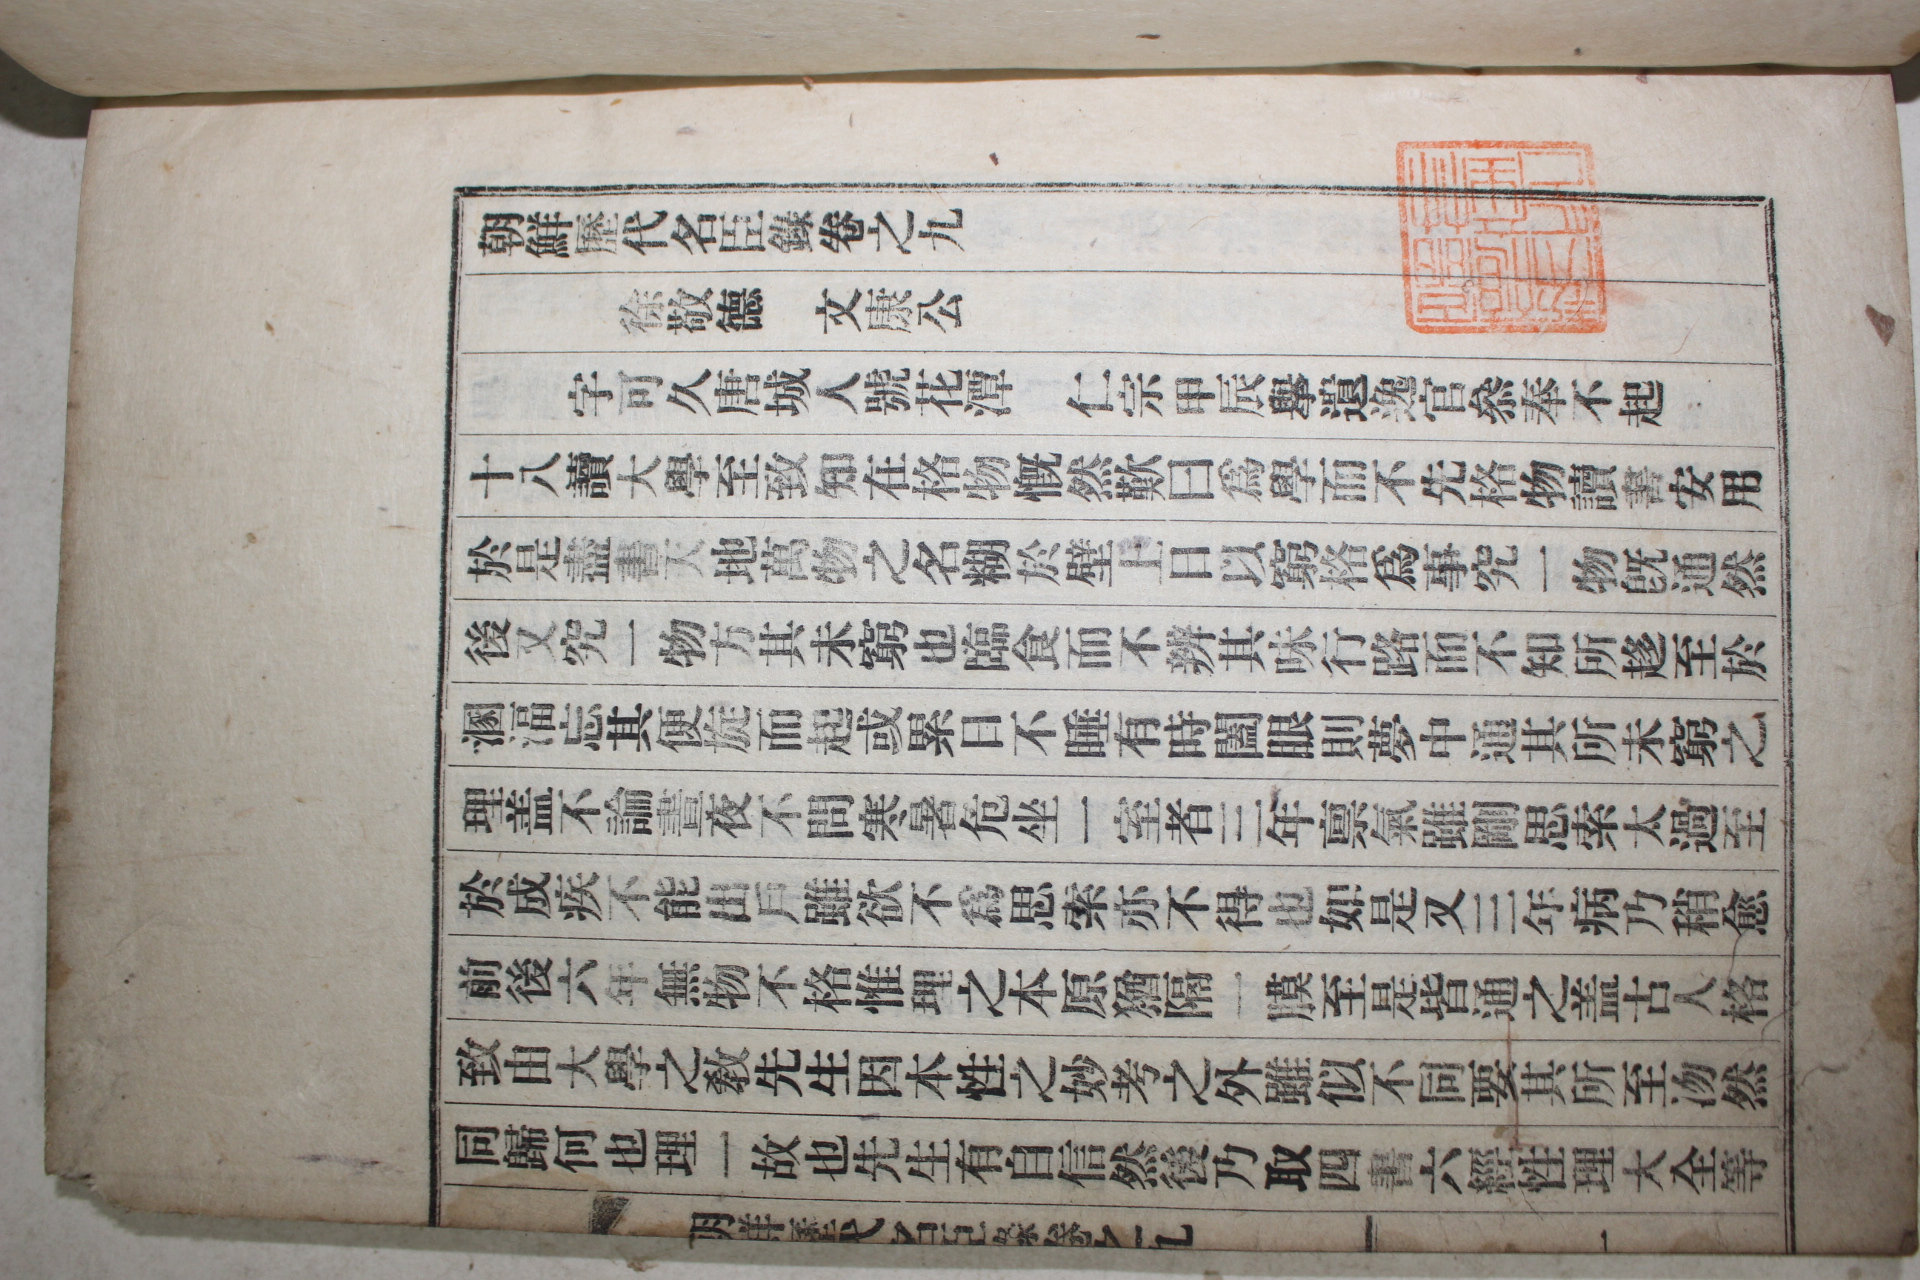 朝鮮歷代名臣錄卷之九
徐敬德 文康公
字可久唐城人號花潭 仁宗甲辰擧遺逸官叅奉不起
十八讀大學至致知在格物慨然歎曰爲學而不先格物讀書安用
於是盡書天地萬物之名糊於壁上日以窮格爲事究一物旣通然
後又究一物方其未窮也臨食而不辨其味行路而不知所趍至於
溷湢忘其便旋而起或累日不睡有時闔眼則夢中通其所未窮之
理盖不論晝夜不問寒暑危坐一室者三年禀氣雖剛思索太過至
於成疾不能出戶雖欲不爲思索亦不得也如是又三年病乃稍愈
前後六年無物不格惟理之本原猶隔一膜至是皆通之盖古人格
致由大學之敎先生因本性之妙考之外雖似不同要其所至沕然
同歸何也理一故也先生有自信然後乃取四書六經性理大全等
朝鮮歷代名臣錄卷之九
一